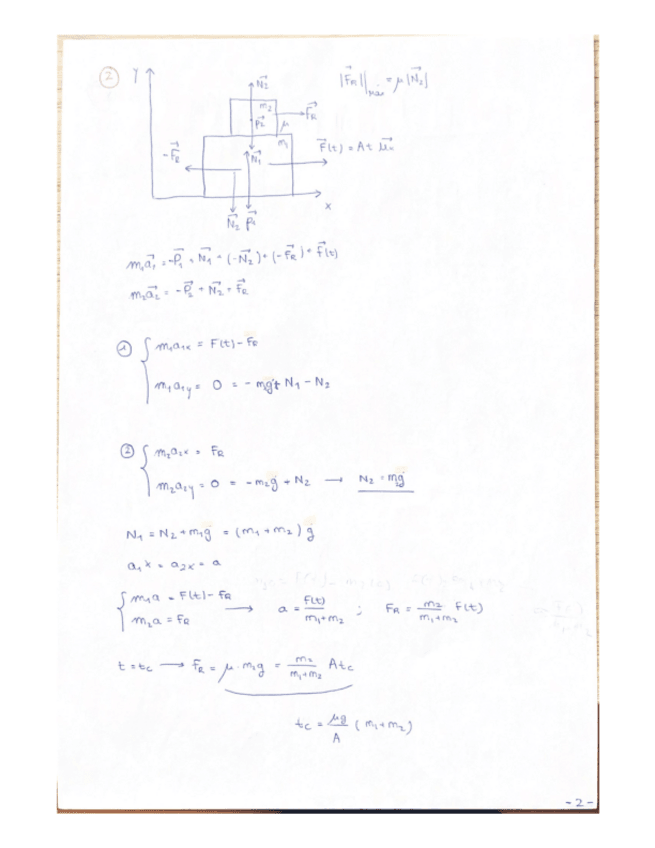 2
y
N⃗2
|F⃗R|máx = μ|N⃗2|
m2
F⃗R
P⃗2
μ
m1
-F⃗R
N⃗1
F⃗(t) = At u⃗x
x
N⃗2 P⃗1
m1a⃗1 = -P⃗1 + N⃗1 + (-N⃗2) + (-F⃗R) + F⃗(t)
m2a⃗2 = -P⃗2 + N⃗2 + F⃗R
① { m1a1x = F(t) - FR
m1a1y = 0 = - m1g + N1 - N2
② { m2a2x = FR
m2a2y = 0 = - m2g + N2 → N2 = m2g
N1 = N2 + m1g = (m1 + m2) g
a1x = a2x = a
{ m1a = F(t) - FR
m2a = FR → a = F(t)/(m1+m2) ; FR = m2/(m1+m2) F(t)
t = tc → FR = μ · m2g = m2/(m1+m2) Atc
tc = μg/A (m1+m2)
-2-